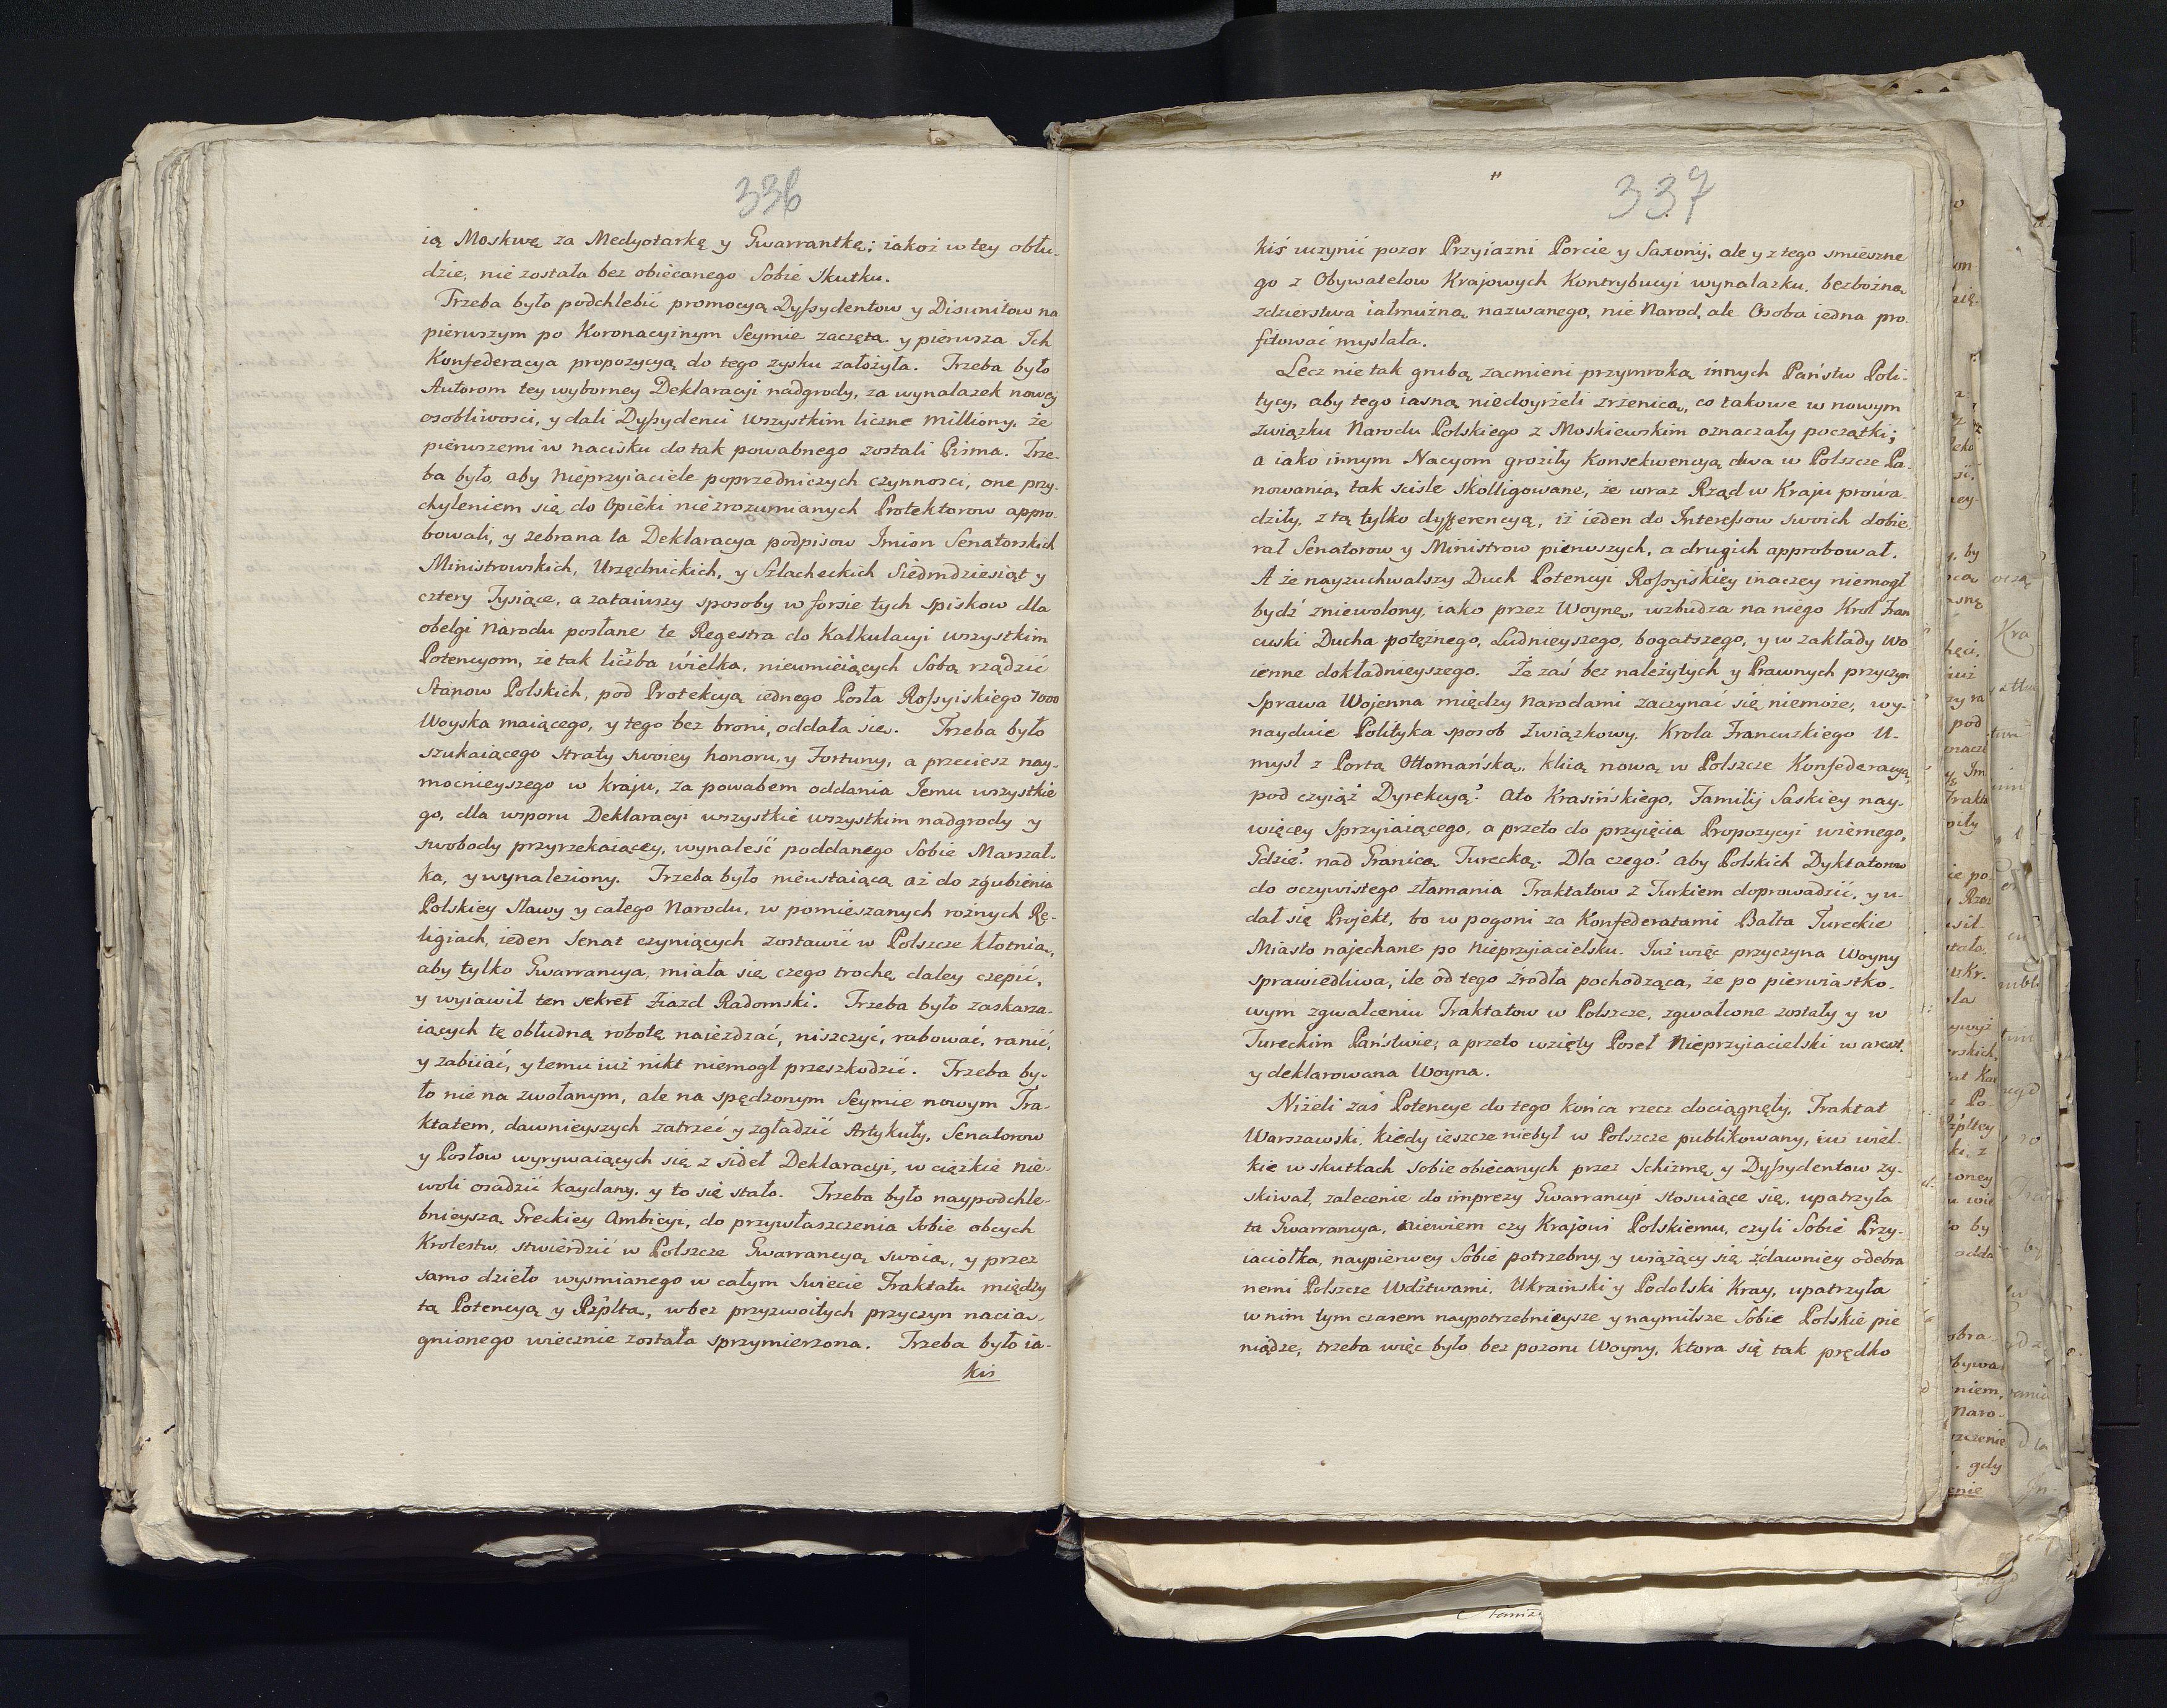 336
ią Moskwę za Medyotarkę y Gwarrantkę; iakoż w tey obłu-
dzie, nie została bez obiecanego Sobie skutku.
Trzeba było podchlebić promocyą Dyssydentow y Disunitow na
pierwszym po Koronacyinym Seymie zaczęta. y pierwsza Ich
Konfederacya propozycyą do tego zysku założyła. Trzeba było
Autorom tey wyborney Deklaracyi nadgrody, za wynalazek nowey
osobliwosci, y dali Dyssydenci wszystkim liczne milliony, że
pierwszemi w nacisku do tak powabnego zostali Pisma. Trze-
ba było, aby Nieprzyiaciele poprzedniczych czynnosci, one przy-
chyleniem się do Opieki niezrozumianych Protektorow appro-
bowali, y zebrana ta Deklaracya podpisow Imion Senatorskich
Ministrowskich, Urzędnickich, y Szlacheckich Siedmdziesiąt y
cztery Tysiące, a zataiwszy sposoby w forsie tych spiskow dla
obelgi Narodu posłane te Regestra do Kalkulacyi wszystkim
Potencyom, że tak liczba wielka, nieumieiących Sobą rządzić
Stanow Polskich, pod Protekcyą iednego Posła Rossyiskiego 7000
Woyska maiącego, y tego bez broni, oddała się. Trzeba było
szukaiącego straty swoiey honoru, y Fortuny, a przeciesz nay-
mocnieyszego w kraju, za powabem oddania Iemu wszystkie
go, dla wsporu Deklaracyi wszystkie wszystkim nadgrody y
swobody przyrzekaiącey, wynaleść poddanego Sobie Marszał-
ka, y wynaleziony. Trzeba było nieustaiącą aż do zgubienia
Polskiey Sławy y całego Narodu, w pomieszanych rożnych Re-
ligiach, ieden Senat czyniących zostawić w Polszcze kłotnią,
aby tylko Gwarrancya, miała się czego trochę daley czepić,
y wyiawił ten sekret Ziazd Radomski. Trzeba było zaskarza-
iących tę obłudną robotę naieżdzać, niszczyć, rabować, ranić,
y zabiiać, y temu iuż nikt niemogł przeszkodzić. Trzeba by-
ło nie na zwołanym, ale na spędzonym Seymie nowym Tra-
ktatem, dawnieyszych zatrzeć y zgładzić Artykuły, Senatorow
y Posłow wyrywaiących się z sideł Deklaracyi, w cięzkie nie-
woli osadzić kaydany, y to się stało. Trzeba było naypodchle-
bnieyszą Greckiey Ambicyi, do przywłaszczenia Sobie obcych
Krolestw, stwierdzić w Polszcze Gwarrancyą swoią, y przez
samo dzieło wysmianego w całym Swiecie Traktatu między
tą Potencyą y Rzplta, w bez przyzwoitych przyczyn nacią-
gnionego wiecznie została sprzymierzona. Trzeba było ia-
kis
337
kiś uczynić pozor Przyiazni Porcie y Saxonij, ale y z tego smieszne
go z Obywatelow Krajowych Kontrybucyi wynalazku, bezbożną
zdzierstwa iałmużną nazwanego, nie Narod, ale Osoba iedna pro-
fitować myslała.
Lecz nie tak grubą zacmieni przymroką innych Państw Poli-
tycy, aby tego iasną niedoyrzeli zrzenicą, co takowe w nowym
związku Narodu Polskiego z Moskiewskim oznaczały początki;
a iako innym Nacyom groziły Konsekwencyą dwa w Polszcze Pa-
nowania, tak scisle skolligowane, że wraz Rząd w Kraju prowa-
dziły, z tą tylko dyfferencyą, iż ieden do Interessow swoich dobie
rał Senatorow y Ministrow pierwszych, a drugich approbował.
A że nayzuchwalszy Duch Potencyi Rossyiskiey inaczey niemogł
bydź zniewolony, iako przez Woynę, wzbudza na niego Krol Fran
cuski Ducha potężnego, Ludnieyszego, bogatszego, y w zakłady Wo-
ienne dokładnieyszego. Że zaś bez należytych y Prawnych przyczyn
Sprawa Wojenna między Narodami zaczynać się niemoże, wy-
nayduie Polityka sposob Związkowy. Krola Francuzkiego U-
mysł z Portą Ottomańską, klią nową w Polszcze Konfederacyą,
pod czyiąż Dyrekcyą? Ato Krasińskiego, Familij Saskiey nay-
więcey Sprzyiaiącego, a przeto do przyięcia Propozycyi wiernego,
Gdzie? nad Granicą Turecką. Dla czego? aby Polskich Dyktatorow
do oczywistego złamania Traktatow z Turkiem doprowadzić, y u-
dał się Projekt, bo w pogoni za Konfederatami Bałta Tureckie
Miasto najechane po Nieprzyiacielsku. Iuż więc przyczyna Woyny
sprawiedliwa, ile od tego źrodła pochodząca, że po pierwiastko-
wym zgwałceniu Traktatow w Polszcze, zgwałcone zostały y w
Tureckim Państwie; a przeto wzięty Poseł Nieprzyiacielski w areszt,
y deklarowana Woyna.
Niżeli zaś Potencye do tego końca rzecz dociągnęły, Traktat
Warszawski, kiedy ieszcze niebył w Polszcze publikowany, iuż wiel-
kie w skutkach Sobie obiecanych przez Schizmę y Dyssydentow zy-
skiwał, zalecenie do imprezy Gwarrancyi stosuiące się, upatrzyła
ta Gwarrancya, niewiem czy Krajowi Polskiemu, czyli Sobie Przy-
iaciołka, naypierwey Sobie potrzebny, y wiążący się zdawniey odebra
nemi Polszcze Wdztwami, Ukrainski y Podolski Kray, upatrzyła
w nim tym czasem naypotrzebnieysze y naymilsze Sobie Polskie pie
niądze, trzeba więc było bez pozoru Woyny, ktora się tak prędko